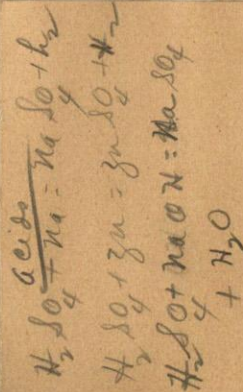 acids
H₂SO₄ + Na = Na SO₄ + h₂
H₂SO₄ + Zn = Zn SO₄ + H₂
H₂SO₄ + NaOH = Na SO₄
+ H₂O